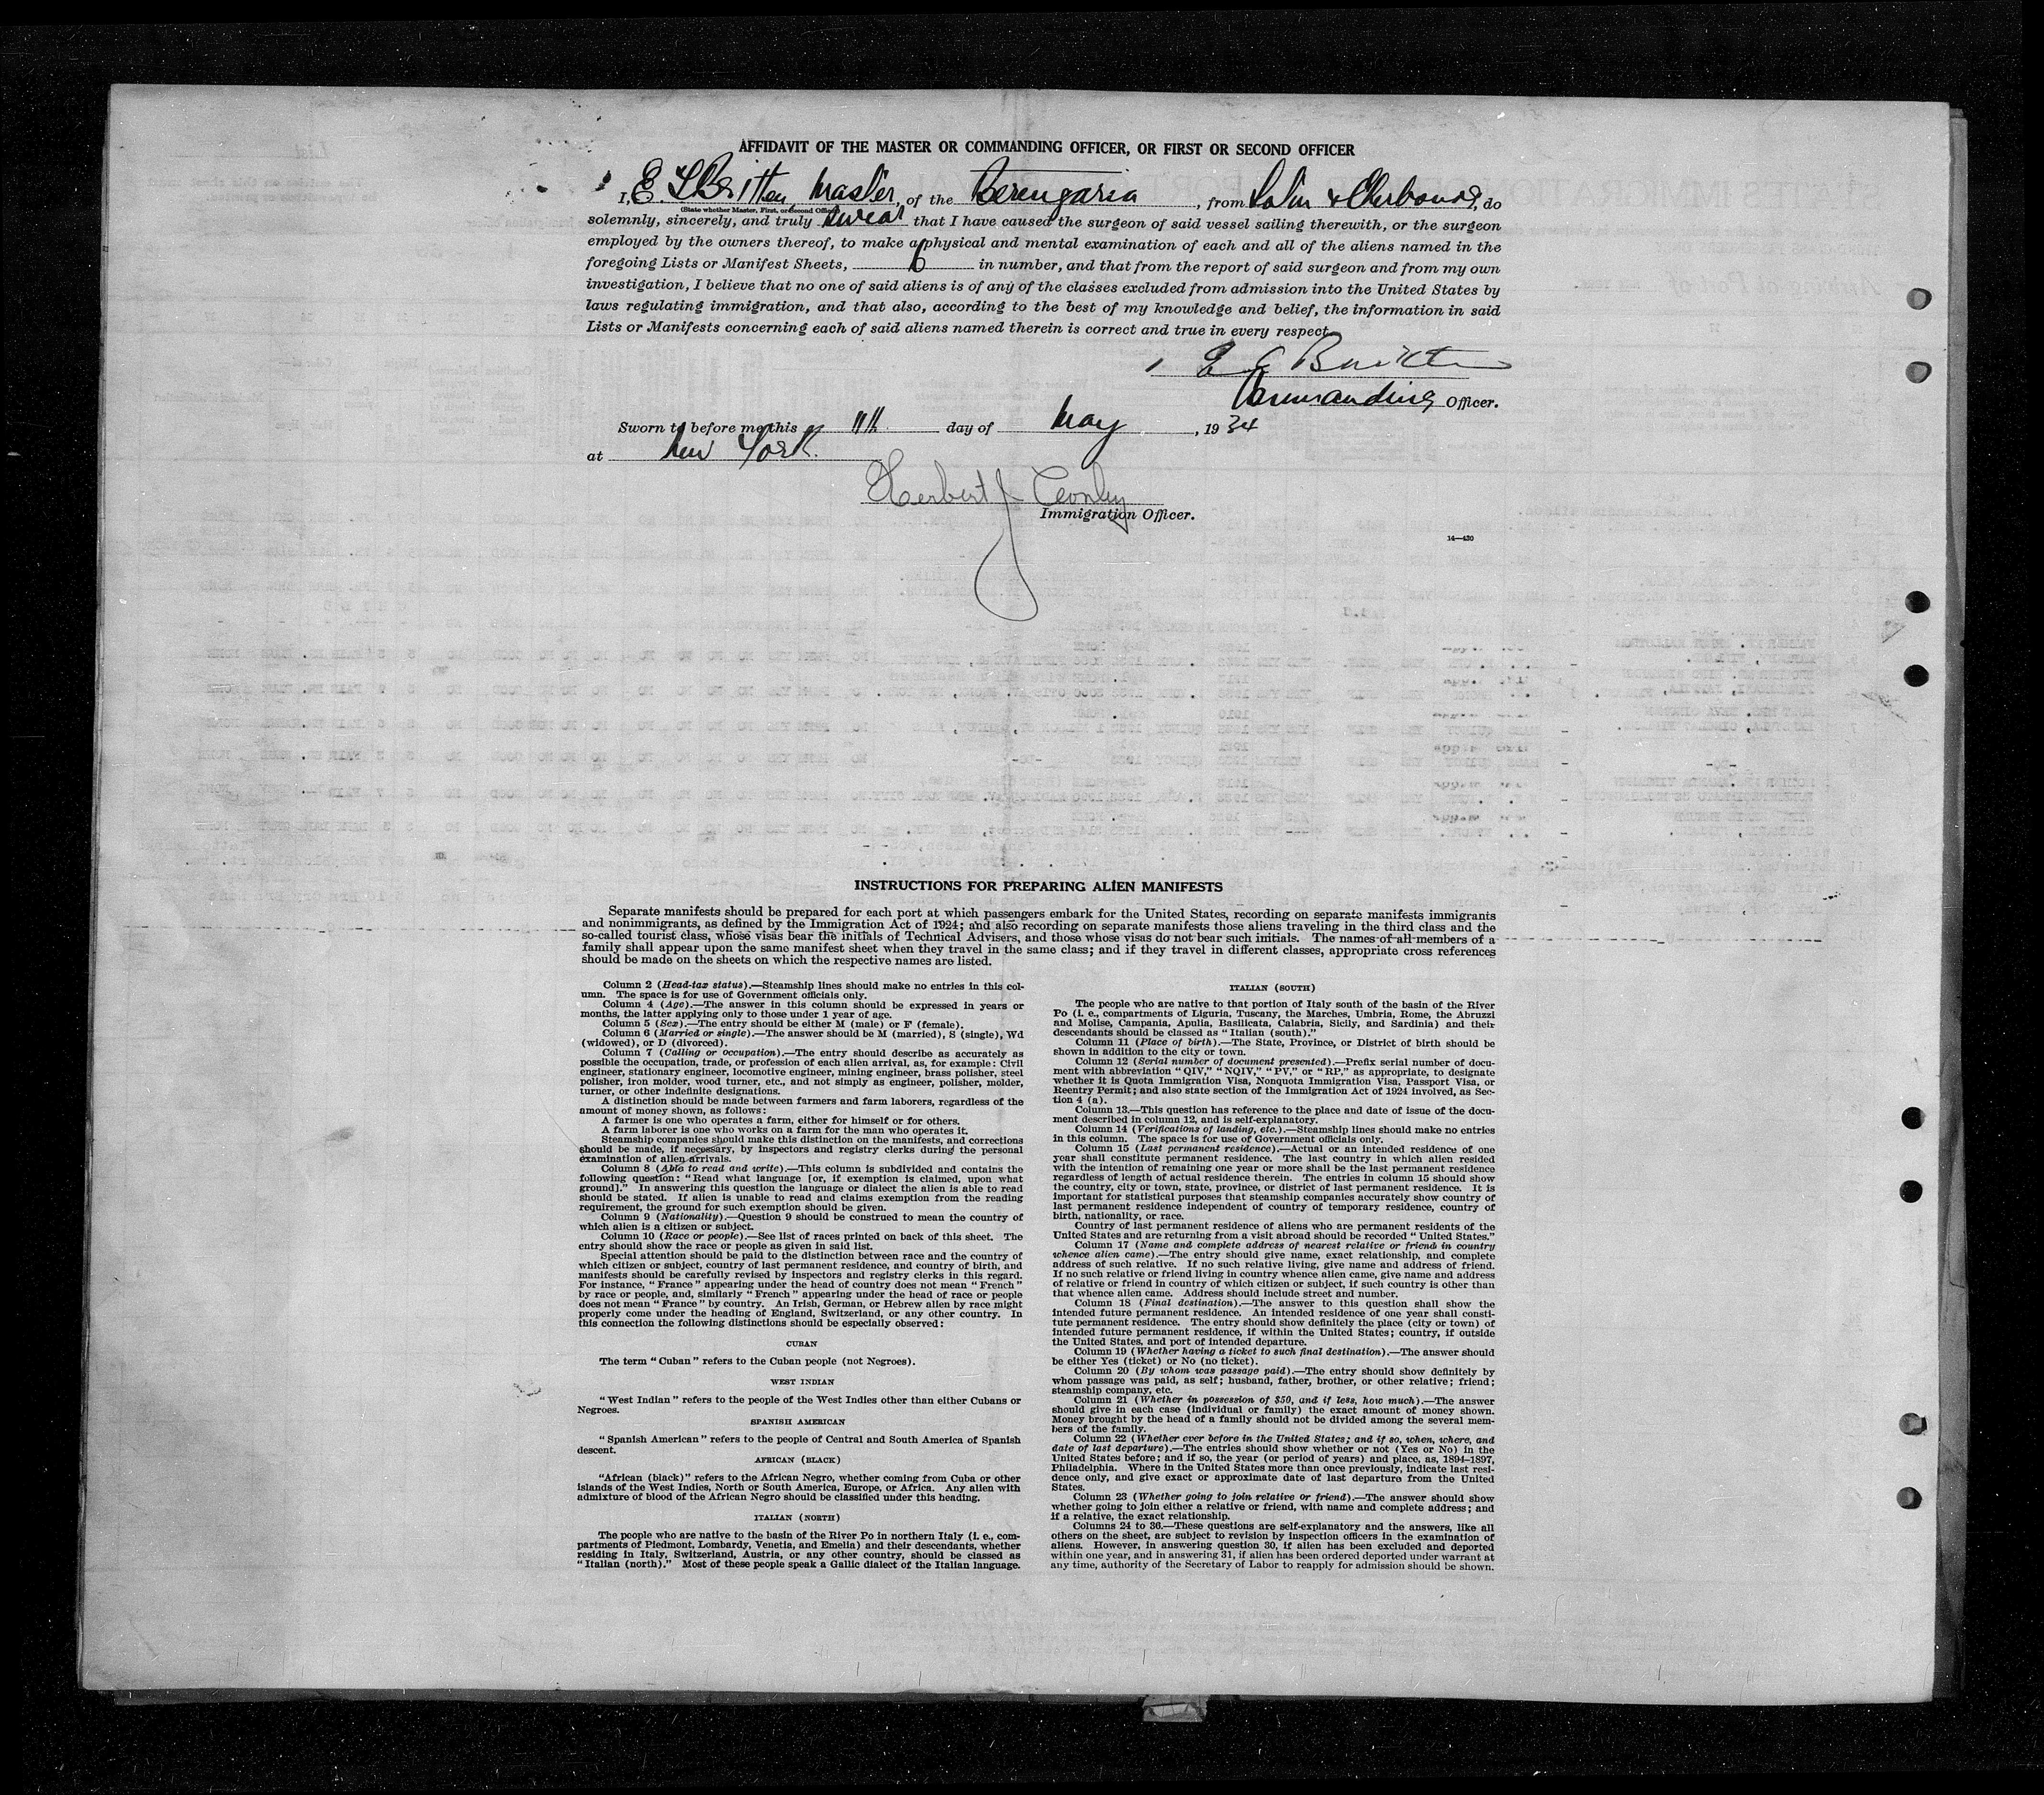 AFFIDAVIT OF THE MASTER OR COMMANDING OFFICER, OR FIRST OR SECOND OFFICER
I, E. Britten, Master, of the Berengaria, from & Cherbourg, do
(State whether Master, First, or Second Officer)
solemnly, sincerely, and truly swear that I have caused the surgeon of said vessel sailing therewith, or the surgeon
employed by the owners thereof, to make a physical and mental examination of each and all of the aliens named in the
foregoing Lists or Manifest Sheets, 6 in number, and that from the report of said surgeon and from my own
investigation, I believe that no one of said aliens is of any of the classes excluded from admission into the United States by
laws regulating immigration, and that also, according to the best of my knowledge and belief, the information in said
Lists or Manifests concerning each of said aliens named therein is correct and true in every respect.
Britten
Commanding Officer.
Sworn to before me this 11th day of May, 1934
at New York.
Herbert J
Immigration Officer.
14—430
INSTRUCTIONS FOR PREPARING ALIEN MANIFESTS
Separate manifests should be prepared for each port at which passengers embark for the United States, recording on separate manifests immigrants
and nonimmigrants, as defined by the Immigration Act of 1924; and also recording on separate manifests those aliens traveling in the third class and the
so-called tourist class, whose visas bear the initials of Technical Advisers, and those whose visas do not bear such initials. The names of all members of a
family shall appear upon the same manifest sheet when they travel in the same class; and if they travel in different classes, appropriate cross references
should be made on the sheets on which the respective names are listed.
Column 2 (Head-tax status).—Steamship lines should make no entries in this col-
umn. The space is for use of Government officials only.
Column 4 (Age).—The answer in this column should be expressed in years or
months, the latter applying only to those under 1 year of age.
Column 5 (Sex).—The entry should be either M (male) or F (female).
Column 6 (Married or single).—The answer should be M (married), S (single), Wd
(widowed), or D (divorced).
Column 7 (Calling or occupation).—The entry should describe as accurately as
possible the occupation, trade, or profession of each alien arrival, as, for example: Civil
engineer, stationary engineer, locomotive engineer, mining engineer, brass polisher, steel
polisher, iron molder, wood turner, etc., and not simply as engineer, polisher, molder,
turner, or other indefinite designations.
A distinction should be made between farmers and farm laborers, regardless of the
amount of money shown, as follows:
A farmer is one who operates a farm, either for himself or for others.
A farm laborer is one who works on a farm for the man who operates it.
Steamship companies should make this distinction on the manifests, and corrections
should be made, if necessary, by inspectors and registry clerks during the personal
examination of alien arrivals.
Column 8 (Able to read and write).—This column is subdivided and contains the
following question: "Read what language [or, if exemption is claimed, upon what
ground]." In answering this question the language or dialect the alien is able to read
should be stated. If alien is unable to read and claims exemption from the reading
requirement, the ground for such exemption should be given.
Column 9 (Nationality).—Question 9 should be construed to mean the country of
which alien is a citizen or subject.
Column 10 (Race or people).—See list of races printed on back of this sheet. The
entry should show the race or people as given in said list.
Special attention should be paid to the distinction between race and the country of
which citizen or subject, country of last permanent residence, and country of birth, and
manifests should be carefully revised by inspectors and registry clerks in this regard.
For instance, "France" appearing under the head of country does not mean "French"
by race or people, and, similarly "French" appearing under the head of race or people
does not mean "France" by country. An Irish, German, or Hebrew alien by race might
properly come under the heading of England, Switzerland, or any other country. In
this connection the following distinctions should be especially observed:
CUBAN
The term "Cuban" refers to the Cuban people (not Negroes).
WEST INDIAN
"West Indian" refers to the people of the West Indies other than either Cubans or
Negroes.
SPANISH AMERICAN
"Spanish American" refers to the people of Central and South America of Spanish
descent.
AFRICAN (BLACK)
"African (black)" refers to the African Negro, whether coming from Cuba or other
islands of the West Indies, North or South America, Europe, or Africa. Any alien with
admixture of blood of the African Negro should be classified under this heading.
ITALIAN (NORTH)
The people who are native to the basin of the River Po in northern Italy (i. e., com-
partments of Piedmont, Lombardy, Venetia, and Emelia) and their descendants, whether
residing in Italy, Switzerland, Austria, or any other country, should be classed as
"Italian (north)." Most of these people speak a Gallic dialect of the Italian language.
ITALIAN (SOUTH)
The people who are native to that portion of Italy south of the basin of the River
Po (i. e., compartments of Liguria, Tuscany, the Marches, Umbria, Rome, the Abruzzi
and Molise, Campania, Apulia, Basilicata, Calabria, Sicily, and Sardinia) and their
descendants should be classed as "Italian (south)."
Column 11 (Place of birth).—The State, Province, or District of birth should be
shown in addition to the city or town.
Column 12 (Serial number of document presented).—Prefix serial number of docu-
ment with abbreviation "QIV," "NQIV," "PV," or "RP," as appropriate, to designate
whether it is Quota Immigration Visa, Nonquota Immigration Visa, Passport Visa, or
Reentry Permit; and also state section of the Immigration Act of 1924 involved, as Sec-
tion 4 (a).
Column 13.—This question has reference to the place and date of issue of the docu-
ment described in column 12, and is self-explanatory.
Column 14 (Verifications of landing, etc.).—Steamship lines should make no entries
in this column. The space is for use of Government officials only.
Column 15 (Last permanent residence).—Actual or an intended residence of one
year shall constitute permanent residence. The last country in which alien resided
with the intention of remaining one year or more shall be the last permanent residence
regardless of length of actual residence therein. The entries in column 15 should show
the country, city or town, state, province, or district of last permanent residence. It is
important for statistical purposes that steamship companies accurately show country of
last permanent residence independent of country of temporary residence, country of
birth, nationality, or race.
Country of last permanent residence of aliens who are permanent residents of the
United States and are returning from a visit abroad should be recorded "United States."
Column 17 (Name and complete address of nearest relative or friend in country
whence alien came).—The entry should give name, exact relationship, and complete
address of such relative. If no such relative living, give name and address of friend.
If no such relative or friend living in country whence alien came, give name and address
of relative or friend in country of which citizen or subject, if such country is other than
that whence alien came. Address should include street and number.
Column 18 (Final destination).—The answer to this question shall show the
intended future permanent residence. An intended residence of one year shall consti-
tute permanent residence. The entry should show definitely the place (city or town) of
intended future permanent residence, if within the United States; country, if outside
the United States, and port of intended departure.
Column 19 (Whether having a ticket to such final destination).—The answer should
be either Yes (ticket) or No (no ticket).
Column 20 (By whom was passage paid).—The entry should show definitely by
whom passage was paid, as self; husband, father, brother, or other relative; friend;
steamship company, etc.
Column 21 (Whether in possession of $50, and if less, how much).—The answer
should give in each case (individual or family) the exact amount of money shown.
Money brought by the head of a family should not be divided among the several mem-
bers of the family.
Column 22 (Whether ever before in the United States; and if so, when, where, and
date of last departure).—The entries should show whether or not (Yes or No) in the
United States before; and if so, the year (or period of years) and place, as, 1894–1897,
Philadelphia. Where in the United States more than once previously, indicate last resi-
dence only, and give exact or approximate date of last departure from the United
States.
Column 23 (Whether going to join relative or friend).—The answer should show
whether going to join either a relative or friend, with name and complete address; and
if a relative, the exact relationship.
Columns 24 to 36.—These questions are self-explanatory and the answers, like all
others on the sheet, are subject to revision by inspection officers in the examination of
aliens. However, in answering question 30, if alien has been excluded and deported
within one year, and in answering 31, if alien has been ordered deported under warrant at
any time, authority of the Secretary of Labor to reapply for admission should be shown.